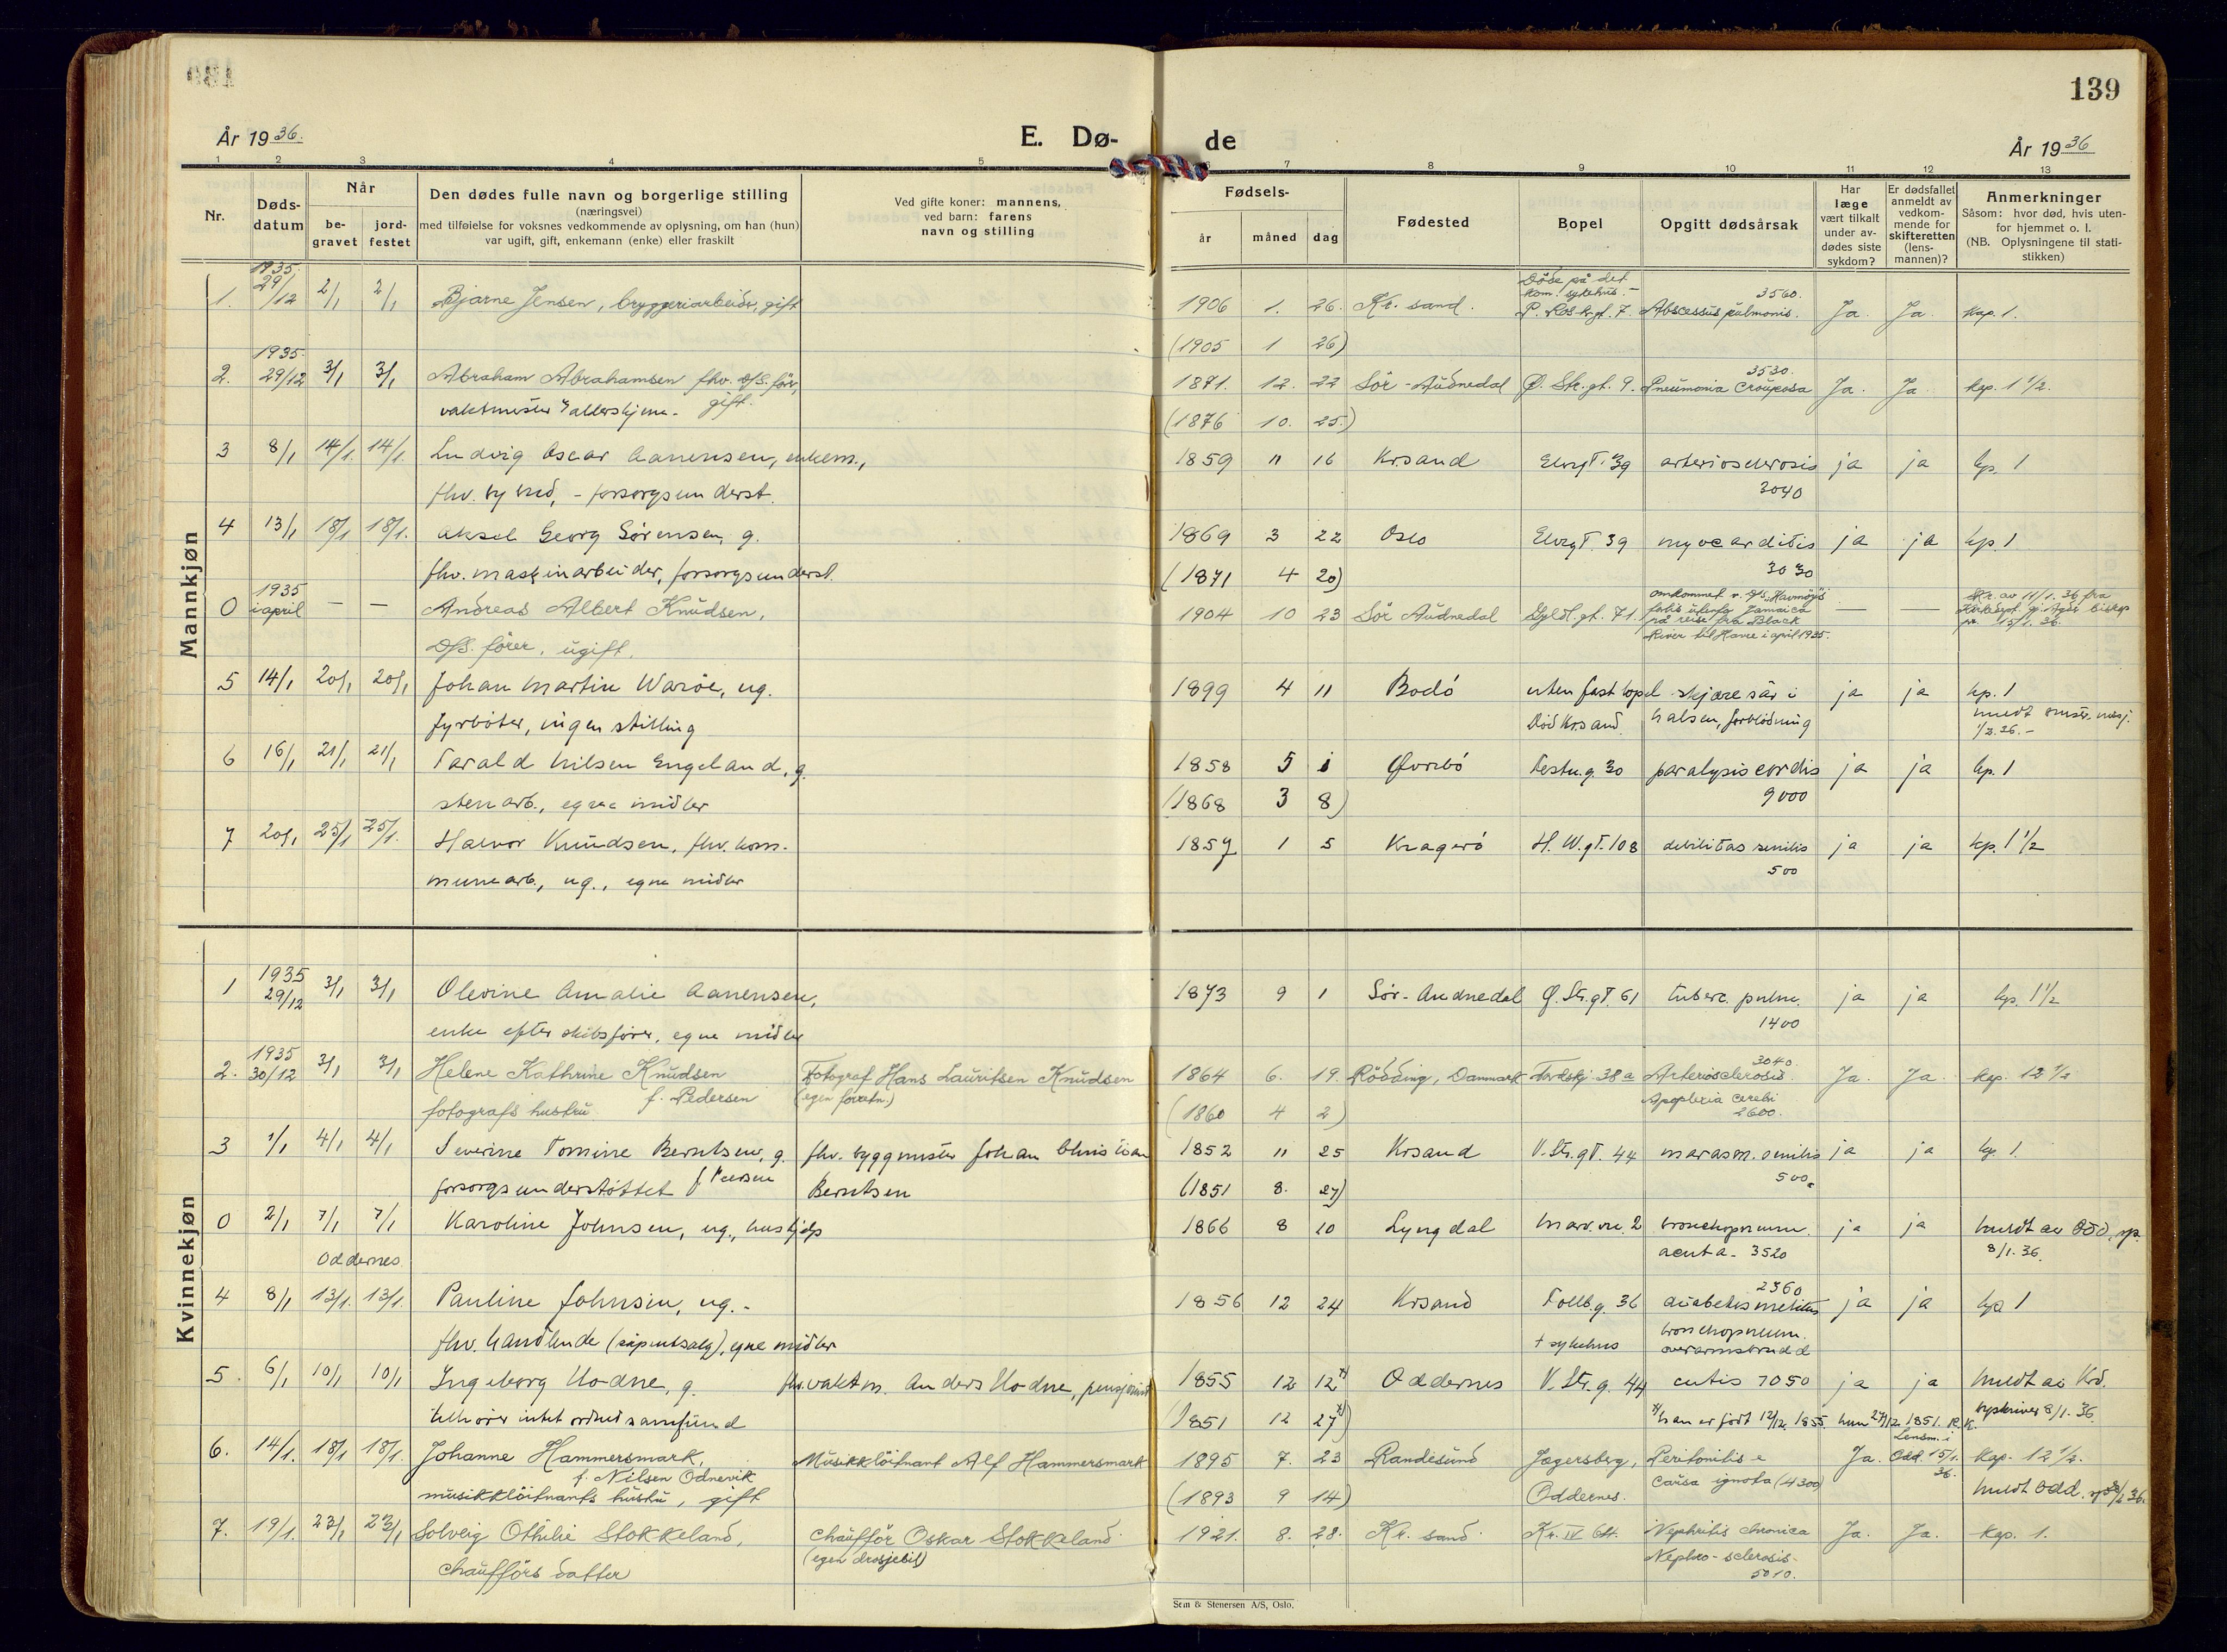 139
År 1936.
E. Dø-
de
År 1936
1 2 3 4 5 6 7 8 9 10 11 12 13
Nr.
Døds-
datum
Når
be-
gravet
jord-
festet
Den dødes fulle navn og borgerlige stilling
(næringsvei)
med tilføielse for voksnes vedkommende av oplysning, om han (hun)
var ugift, gift, enkemann (enke) eller fraskilt
Ved gifte koner: mannens,
ved barn: farens
navn og stilling
Fødsels-
år måned dag
Fødested
Bopel
Opgitt dødsårsak
Har
læge
vært tilkalt
under av-
dødes siste
sykdom?
Er dødsfallet
anmeldt av
vedkom-
mende for
skifteretten
(lens-
mannen)?
Anmerkninger
Såsom: hvor død, hvis uten-
for hjemmet o. l.
(NB. Oplysningene til stati-
stikken)
Mannkjøn
1. 1935 29/12 2/1 2/1 Bjarne Jensen, bryggeriarbeider, gift 1906 1. 26. Kr. sand. Döde på det kom. sykehus. - P. Rosk.gt. 7. 3560. Abscessus pulmonis. Ja. Ja. Kap. 1.
(1905 1 26)
2. 1935 29/12 3/1 3/1 Abraham Abrahamsen fhv. D/S. förer, 1871. 12. 22 Sör-Audnedal Ø. Str.gt. 9. 3530. Pneumonia Crouposa Ja. Ja. Kap. 1 1/2.
vaktmester gift.
(1876 10. 25.)
3 8/1 14/1. 14/1. Ludvig Oscar Aanensen, enkem., 1859 11 16 Krsand Elvegt. 39 arteriosclerosis ja ja kp. 1
fhv. - forsorgsunderst. 3040
4 13/1 18/1 18/1. Aksel Georg Sörensen, g. 1869 3 22 Oslo Elvegt. 39 myocarditis ja ja kp. 1
fhv. maskinarbeider, forsorgsunderst. (1871 4 20) 3030
0 1935 i april — — Andreas Albert Knudsen, 1904 10 23 Sör Audnedal Gyld.gt. 71. omkommet v. D/S. "Havmöy's" forlis utenfor Jamaica på reise fra Black River til Havre i april 1935. — — Skr. av 11/1. 36 fra
D/S. förer, ugift. 15/1. 36.
5 14/1 20/1 20/1 Johan Martin Waröe, ug. 1899 4 11 Bodö uten fast bopel skjæresår i ja ja kp. 1
fyrböter, ingen stilling Död Krsand. halsen, forblödning meldt 1/2. 36. -
6 16/1 21/1 21/1 Tarald Nilsen Engeland, g. 1858 5 1 Øvrebö Festn.g. 30 paralysis cordis ja ja kp. 1
stenarb., egne midler (1868 3 8) 9000
7 20/1 25/1 25/1. Halvor Knudsen, fhv. kom- 1857 1 5 Kragerö H. W. gt. 108 debilitas senilis ja ja kp. 1 1/2
munearb., ug., egne midler 500
Kvinnekjøn
1 1935 29/12 3/1 3/1 Olevine Amalie Aanensen, 1873 9 1 Sör-Audnedal Ø. Str.gt. 61 tuberc. pulm. ja ja kp. 1 1/2
enke efter skibsförer, egne midler 1400
2. 1935 30/12 3/1 3/1 Helene Kathrine Knudsen Fotograf Hans Lauritsen Knudsen 1864 6. 19. Rödding, Danmark Tordskj. 38a 3040 Arteriosclerosis. Ja. Ja. Kap. 12 1/2
fotografs hustru. f. Pedersen (egen forretn.) (1860 4 2) Apoplexia cerebi 2600.
3 1/1 4/1 4/1 Severine Tomine Berntsen, g. fhv. byggmester Johan Christian 1852 11 25 Krsand V. Str.gt. 44 marasm. senilis ja ja kp. 1.
forsorgsunderstöttet f Berntsen (1851 8. 27) 500.
0 2/1 7/1 7/1 Karoline Johnsen, ug., hushjelp 1866 8 10 Lyngdal 2 bronchopneum. ja ja meldt av Odd. sp.
Oddernes acuta - 3520 8/1. 36.
4 8/1 13/1. 13/1. Pauline Johnsen, ug. - 1856 12 24 Krsand Tollb.g. 36 2360 diabetes melitus ja ja kp 1
fhv. handlende (såpeutsalg), egne midler + sykehus bronchopneum. overarmsbrudd
5. 6/1 10/1 10/1 Ingeborg Hodne, g. fhv. vaktm. Anders Hodne, pensjonist 1855 12 12 x) Oddernes V. Str. g. 44 cutis 7050 ja ja meldt av Krd.
tilhörer intet ordnet samfund (1851 12 27 x)) x) han er födt 12/12. 1855. hun 27/12. 1851. R. K. 8/1. 36.
6. 14/1. 18/1 18/1 Johanne Hammersmark, Musikklöitnant Alf Hammersmark 1895 7. 23 Randesund Jægersberg, Peritonitis e Ja. Lensm. i Odd. 15/1. 36. Kap. 12 1/2.
f. Nilsen Odnevik
musikklöitnants hustru, gift (1893 9 14) Oddernes. causa ignota (4300) meldt Odd.
7. 19/1. 23/1 23/1 Solveig Othilie Stokkeland, Chauffør Oskar Stokkeland 1921. 8. 28. Kr. sand Kr. IV 64. Nephritis chronica Ja. Ja. Kap. 1.
chaufförs datter (egen drosjebil) Nephro-sclerosis. 5010.
Sem & Stenersen A/S, Oslo.